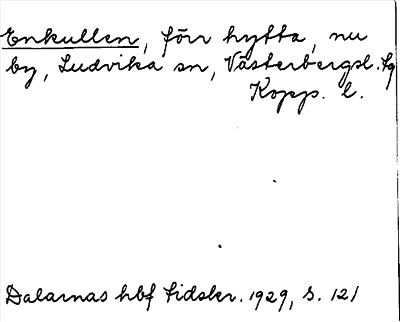 Enkullen, förr hytta, nu
by, Ludvika sn, Västerbergsl. tg
Kopp. l.
Dalarnas hbf tidskr. 1929, S. 121